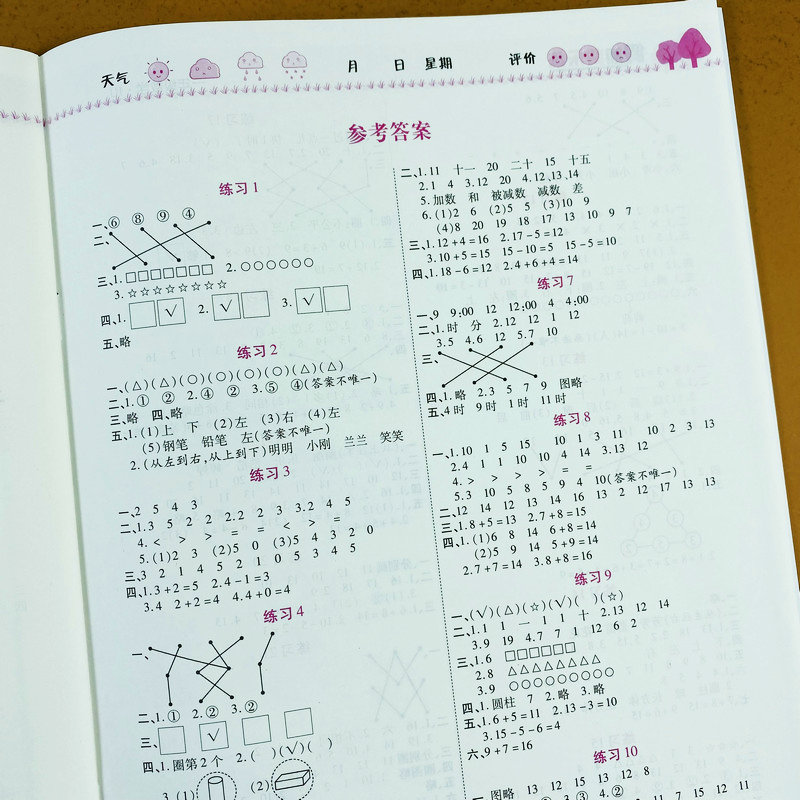 天气 月 日 星期 评价
参考答案
练习1
一、⑥ ⑧ ⑨ ④
二、
三、1.□□□□□□□ 2.○○○○○○
3.☆☆☆☆☆☆☆☆
四、1. √ 2.√ 3.√
五、略
练习2
一、(△)(△)(○)(○)(○)(○)(△)(△)
二、1.① ② 2.④ ② 3.⑤ ④(答案不唯一)
三、略 四、略
五、1.(1)上 下 (2)左 (3)右 (4)左
(5)钢笔 铅笔 左(答案不唯一)
2.(从左到右,从上到下)明明 小刚 兰兰 笑笑
练习3
一、2 5 4 3
二、1.3 5 2 2 2.2 2 3 3.2 4 5
4.< > > = = < > =
5.(1)2 3 (2)5 0 (3)5 4 3 2 0
三、3 2 1 4 5 2 1 0 5 3 4 5
四、1.3+2=5 2.4-1=3
3.4 2+2=4 4.4+0=4
练习4
一、
二、1.① 2.② 3.②
三、 √
四、1.圈第2个 2.( )(√)( )
3.(1) (2)
二、1.11 十一 20 二十 15 十五
2.1 4 3.12 20 4.12、13、14
5.加数 和 被减数 减数 差
6.(1)2 6 (2)5 5 (3)10 9
(4)8 20 19 18 17 13 10 9 7
三、1.12+4=16 2.17-5=12
3.10+5=15 15-10=5 15-5=10
四、1.18-6=12 2.4+6+4=14
练习7
一、9 9:00 12 12:00 4 4:00
二、1.时 分 2.12 12 1 12
3.5 4.6 12 5.7 10
三、
四、1.略 2.3 5 7 9 图略
五、4时 9时 1时 11时
练习8
一、1.10 1 5 15 10 1 3 11 10 2 3 13
2.4 1 1 10 10 4 14 3.13 12
4.> > > > = =
5.3 10 5 8 5 9 4 10(答案不唯一)
二、12 14 12 13 14 16 13 2 12 17 13 13
三、1.8+5=13 2.7+8=15
四、1.(1)6 8 14 6+8=14
(2)5 9 14 5+9=14
2.7+7=14 3.8+8=16
练习9
一、(√)(△)(☆)(√)( )(☆)
二、1.1 1 一 1 1 十 2.13 12 14
3.9 19 4.7 7 1 12 6 2
三、1.6 □□□□□□
2.8 △△△△△△△△
3.9 ○○○○○○○○○
四、1.圆柱 7 2.略 3.略
五、1.6+5=11 2.13-3=10
3.15-5-6=4
六、9+7=16
练习10
一、图略 13 12 15 13 12 8